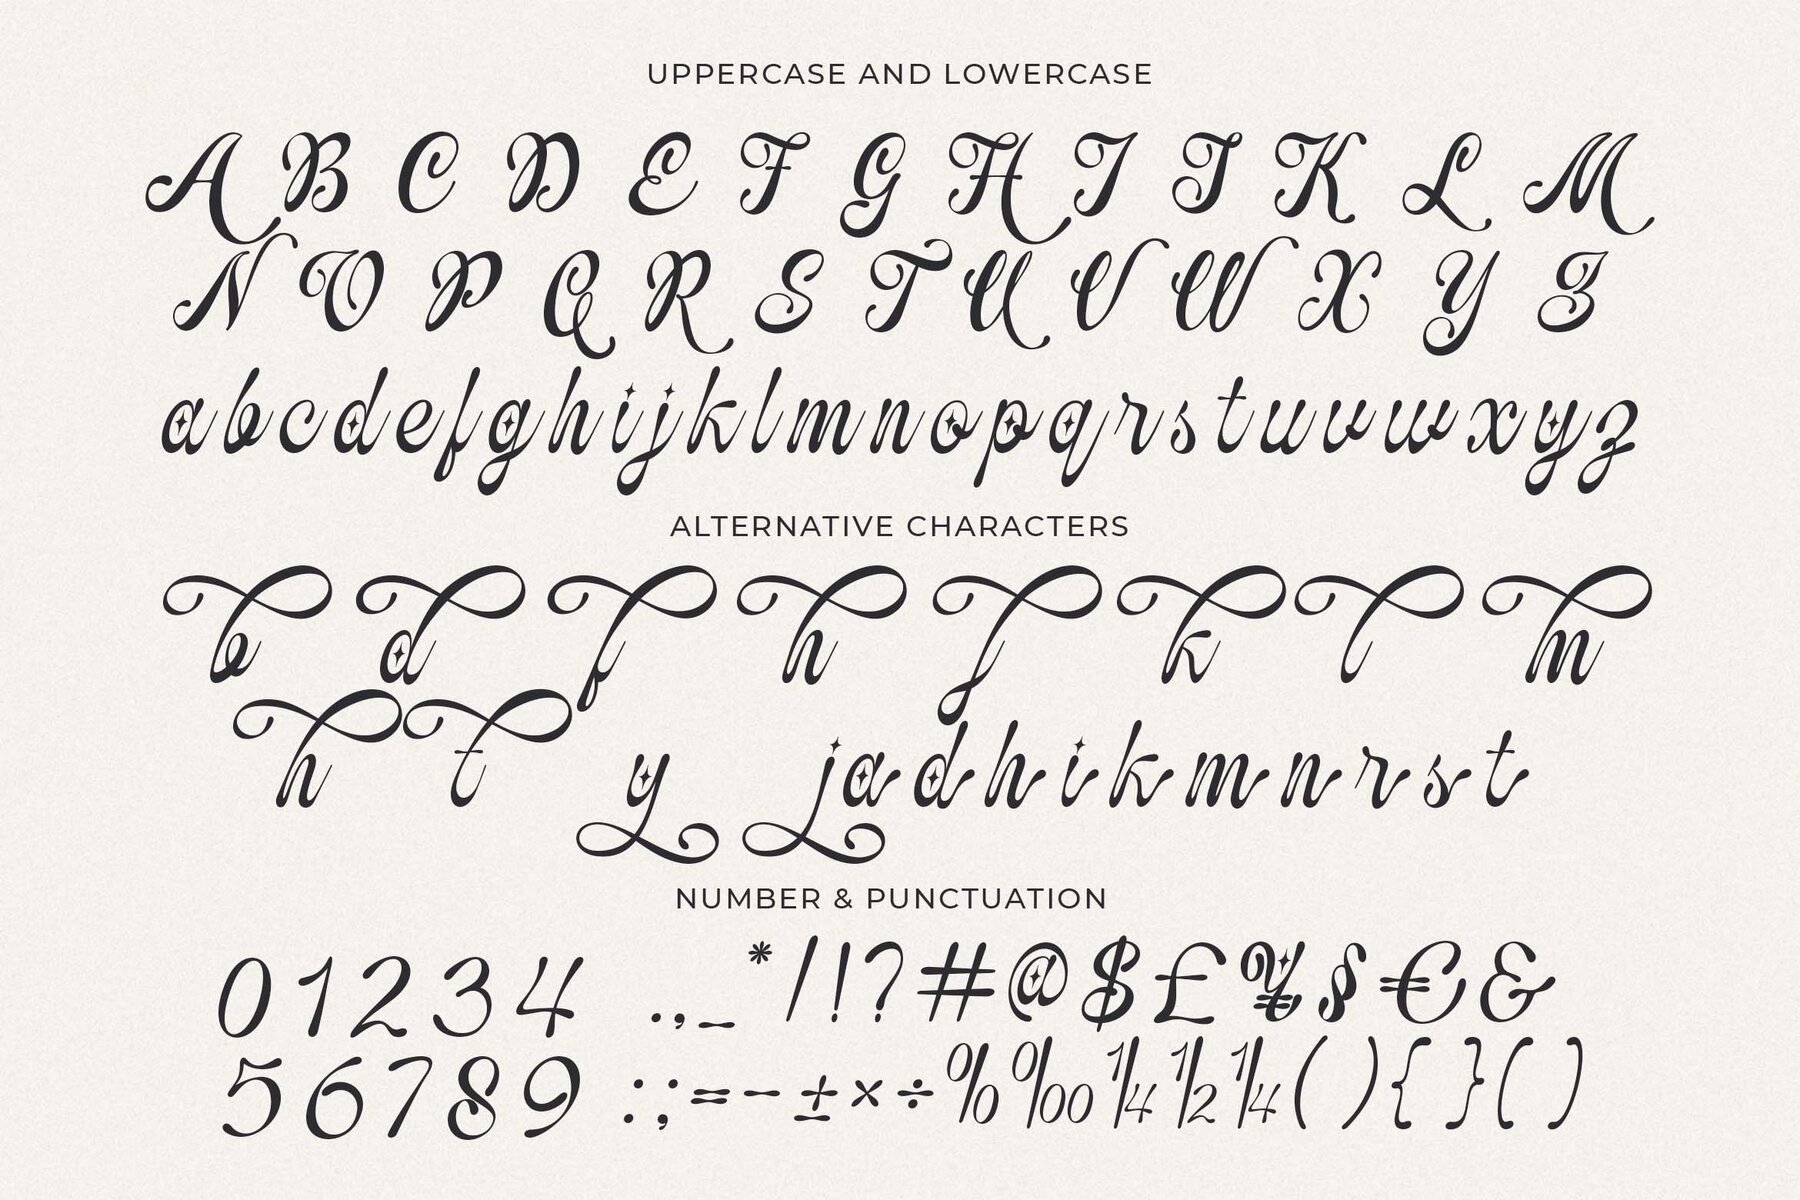 UPPERCASE AND LOWERCASE
A B C D E F G H I J K L M
N O P Q R S T U V W X Y Z
a b c d e f g h i j k l m n o p q r s t u v w x y z
ALTERNATIVE CHARACTERS
b d f h j k l m
n t y j a d h i k m n r s t
NUMBER & PUNCTUATION
0 1 2 3 4 . , _ * / ! ? # @ $ £ ¥ § € &
5 6 7 8 9 : ; = - ± × ÷ % ‰ ¼ ½ ¼ ( ) { } ( )